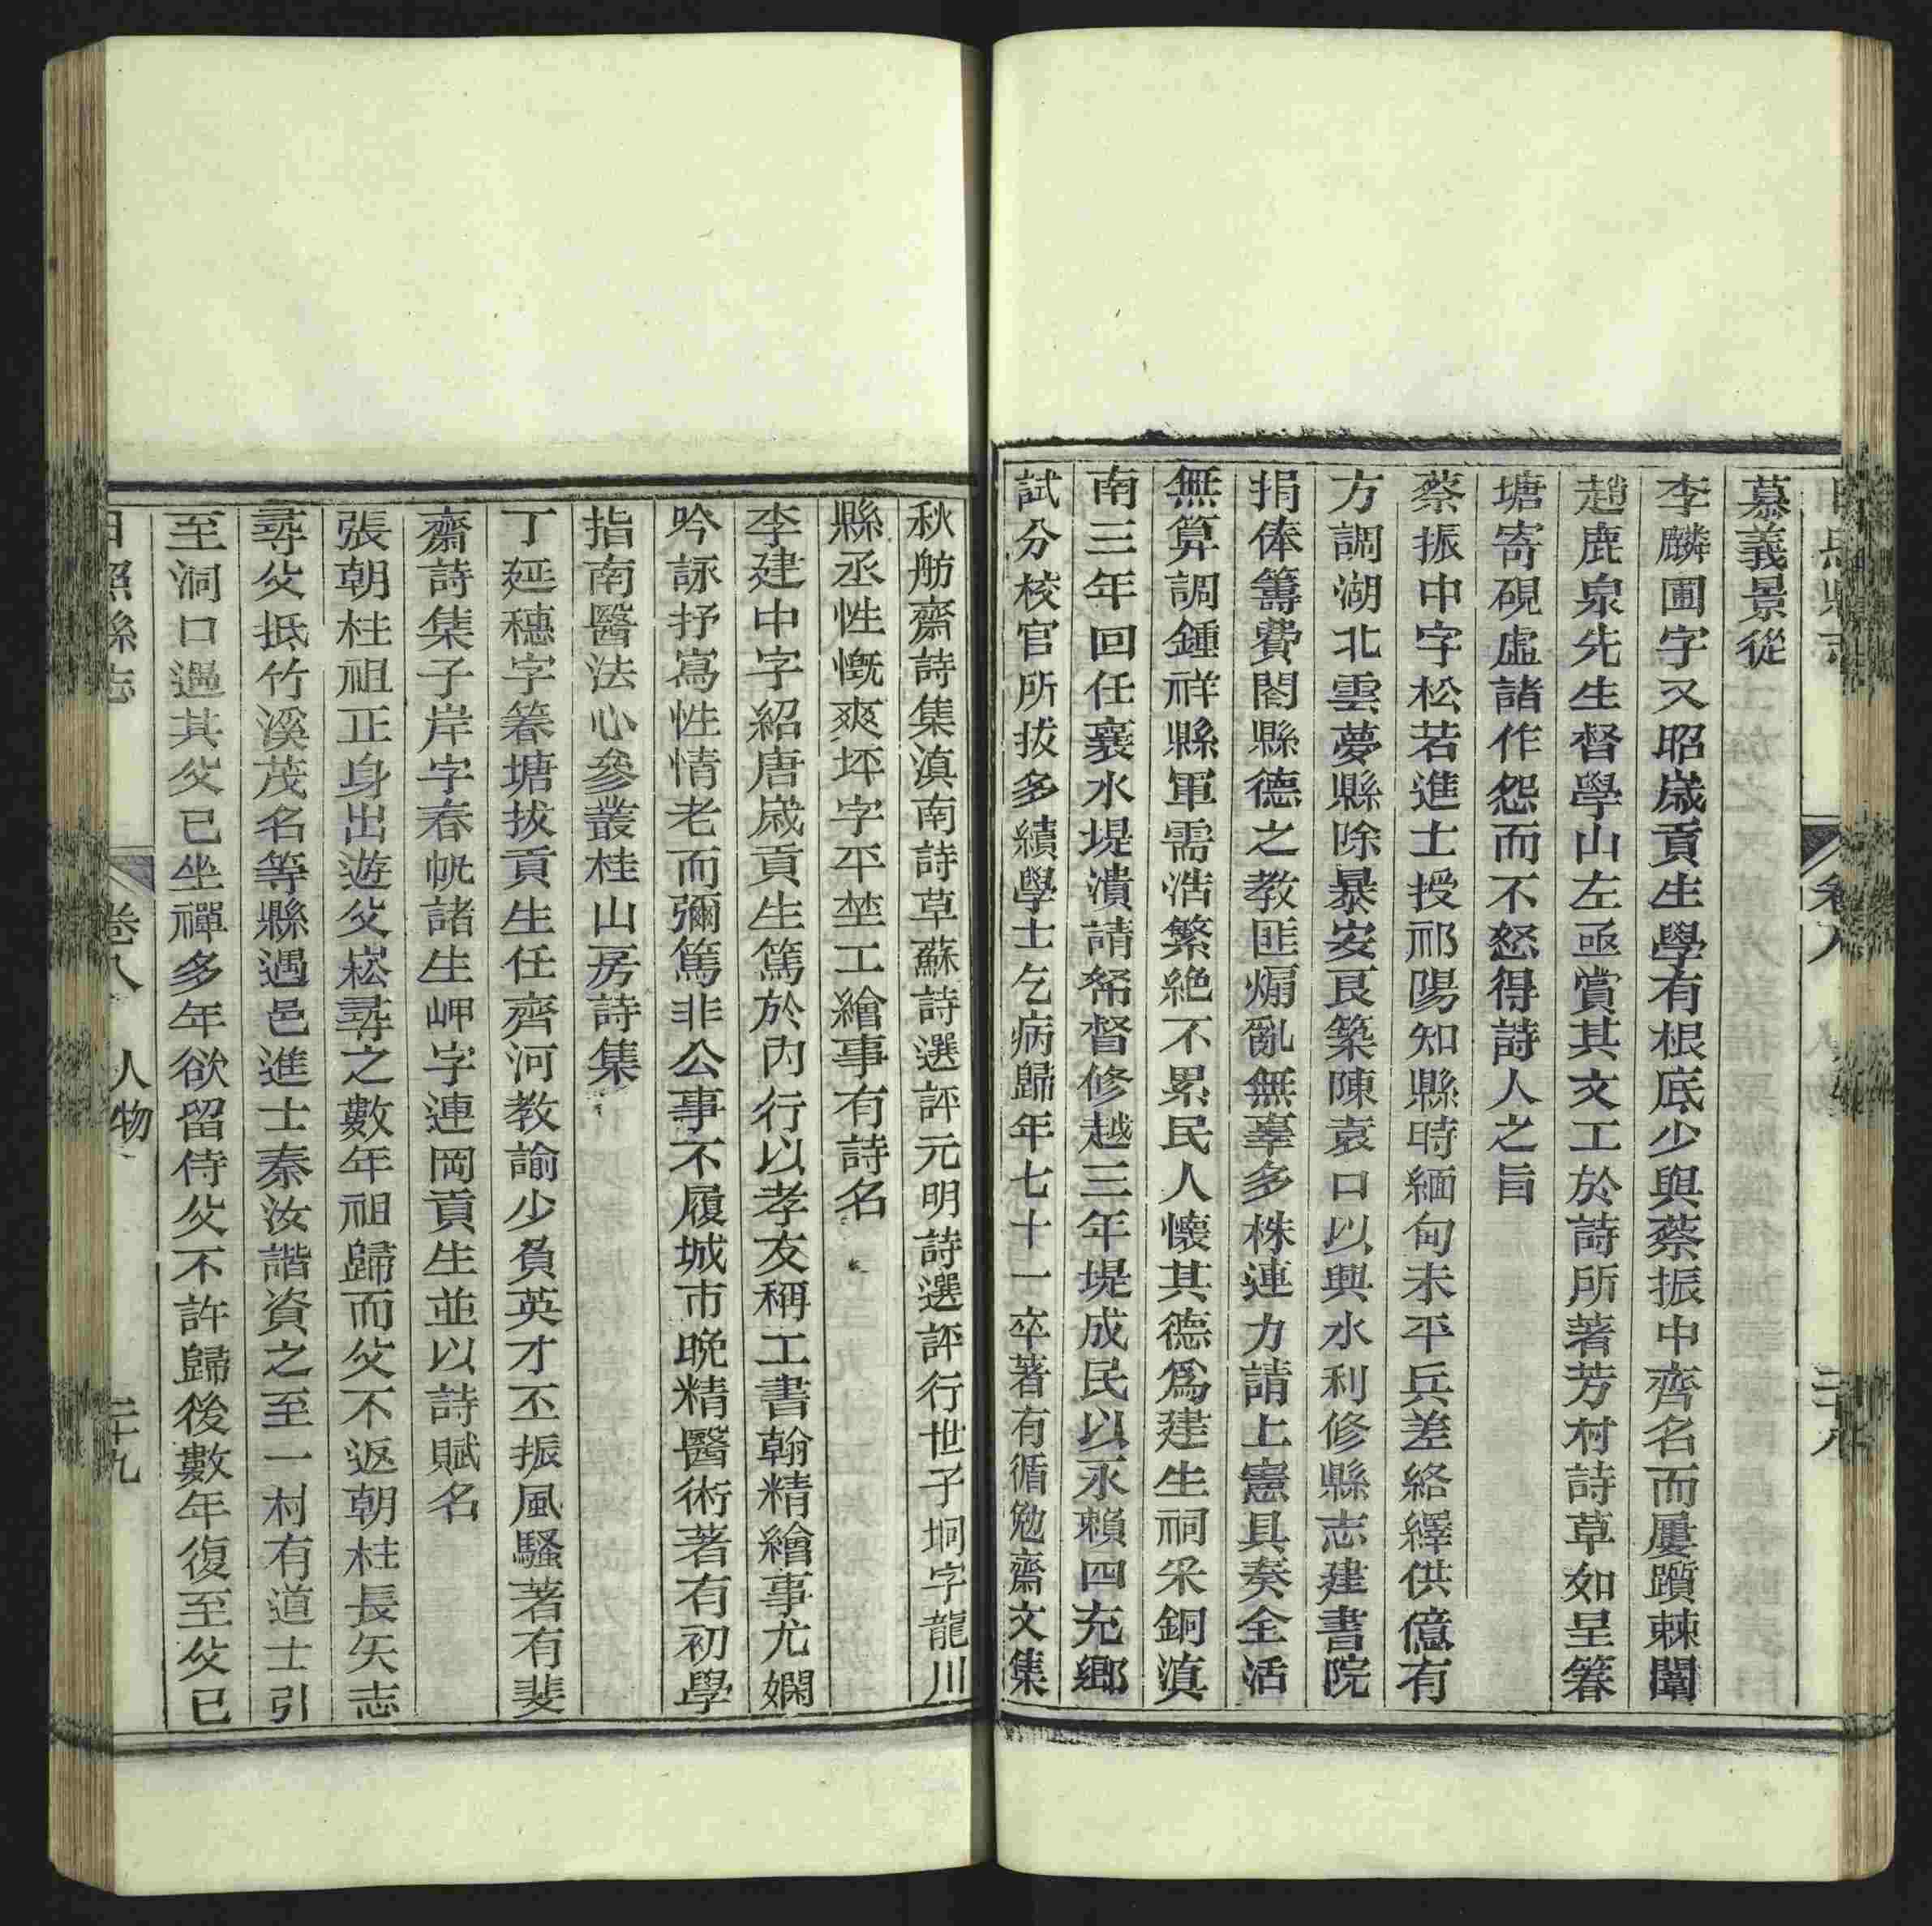 慕義景從
李麟圃字又昭歲貢生學有根底少與蔡振中齊名而屢躓棘闈
趙鹿泉先生督學山左亟賞其文工於詩所著芳村詩草如呈篛
塘寄硯虛諸作怨而不怒得詩人之旨
蔡振中字松若進士授祁陽知縣時緬甸未平兵差絡繹供億有
方調湖北雲夢縣除暴安良築陳袁口以興水利修縣志建書院
捐俸籌費閤縣德之教匪煽亂無辜多株連力請上憲具奏全活
無算調鍾祥縣軍需浩繁絶不累民人懷其德爲建生祠采銅滇
南三年回任襄水堤潰請帑督修越三年堤成民以永賴四充鄉
試分校官所拔多績學士乞病歸年七十一卒著有循勉齋文集
秋舫齋詩集滇南詩草蘇詩選評元明詩選評行世子坰字龍川
縣丞性慨爽坪字平埜工繪事有詩名
李建中字紹唐歲貢生篤於內行以孝友稱工書翰精繪事尤嫻
吟詠抒寫性情老而彌篤非公事不履城市晩精醫術著有初學
指南醫法心參叢桂山房詩集
丁延穗字篛塘拔貢生任齊河教諭少負英才丕振風騷著有斐
齋詩集子岸字春帆諸生岬字連岡貢生並以詩賦名
張朝柱祖正身出遊父崧尋之數年祖歸而父不返朝柱長矢志
尋父抵竹溪茂名等縣遇邑進士秦汝諧資之至一村有道士引
至洞口過其父已坐禪多年欲留侍父不許歸後數年復至父已
日照縣志 卷八 人物 二十九